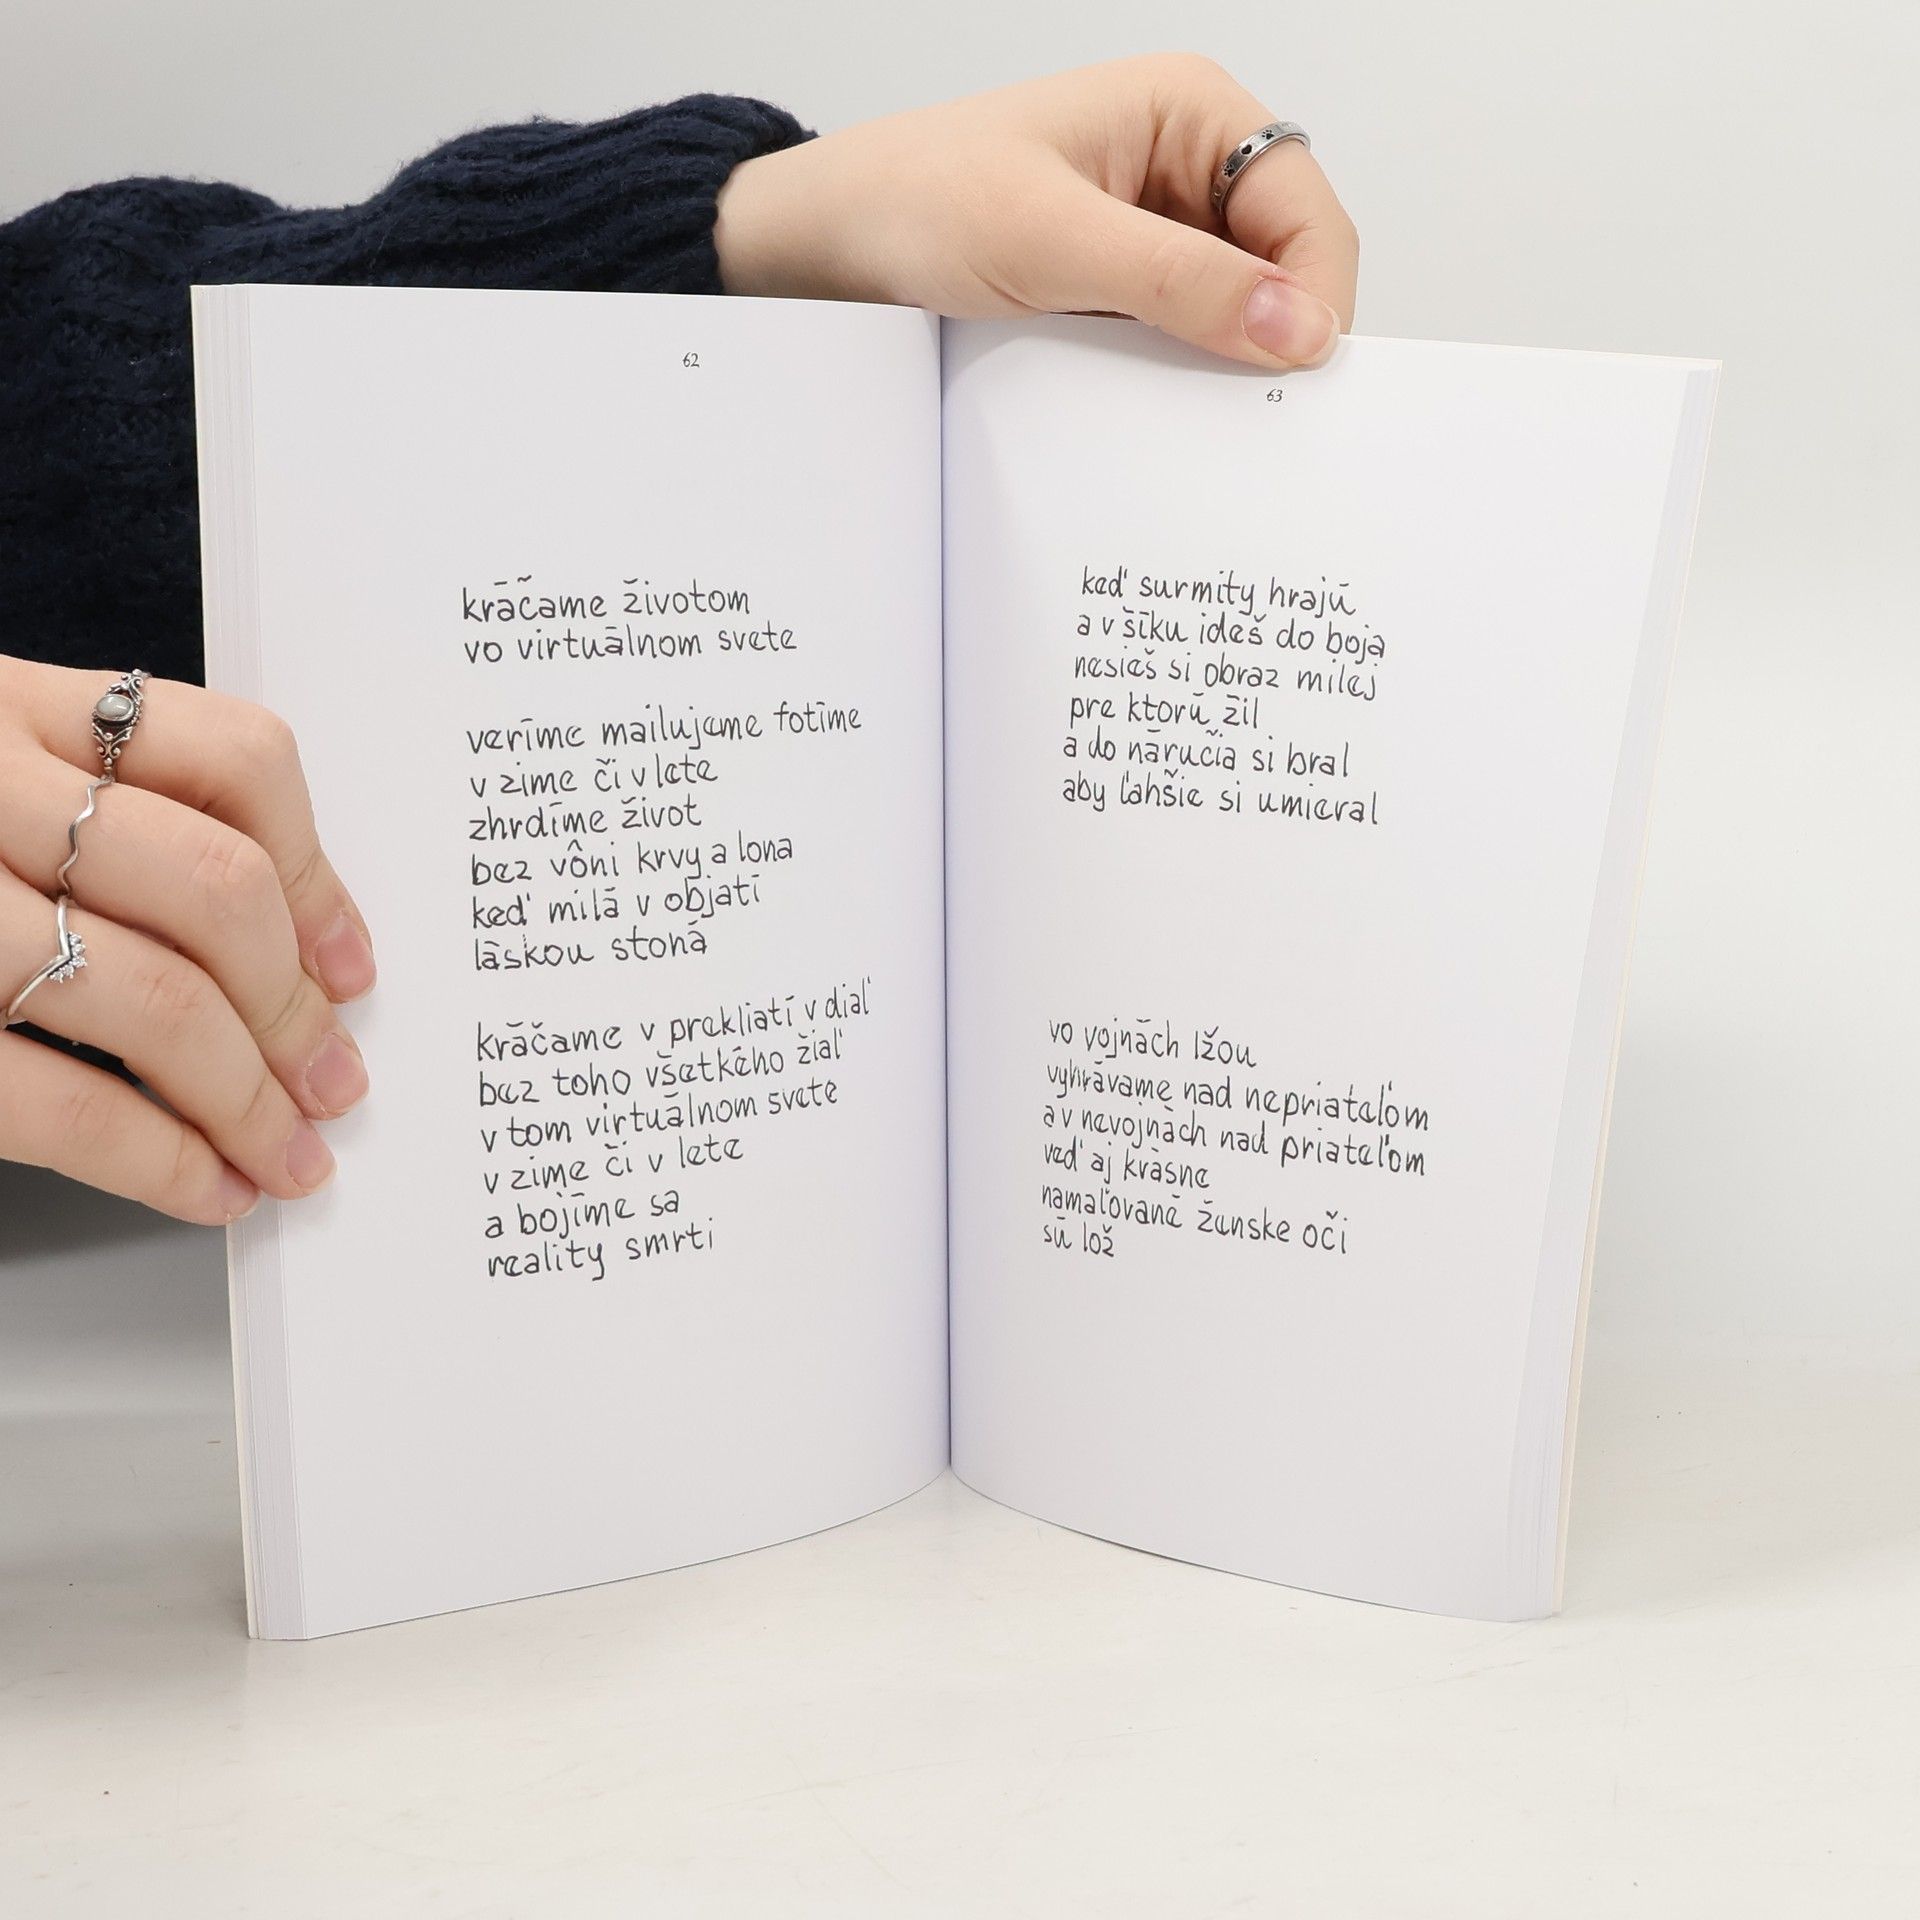 62
kráčame životom
vo virtuálnom svete
veríme mailujeme fotíme
v zime či v lete
zhrdíme život
bez vôni krvy a lona
keď milá v objatí
láskou stoná
kráčame v prekliatí v diaľ
bez toho všetkého žiaľ
v tom virtuálnom svete
v zime či v lete
a bojíme sa
reality smrti
63
keď surmity hrajú
a v šíku ideš do boja
nesieš si obraz milej
pre ktorú žil
a do náručia si bral
aby ľahšie si umieral
vo vojnách lžou
vyhrávame nad nepriateľom
a v nevojnách nad priateľom
veď aj krásne
namaľované ženske oči
sú lož